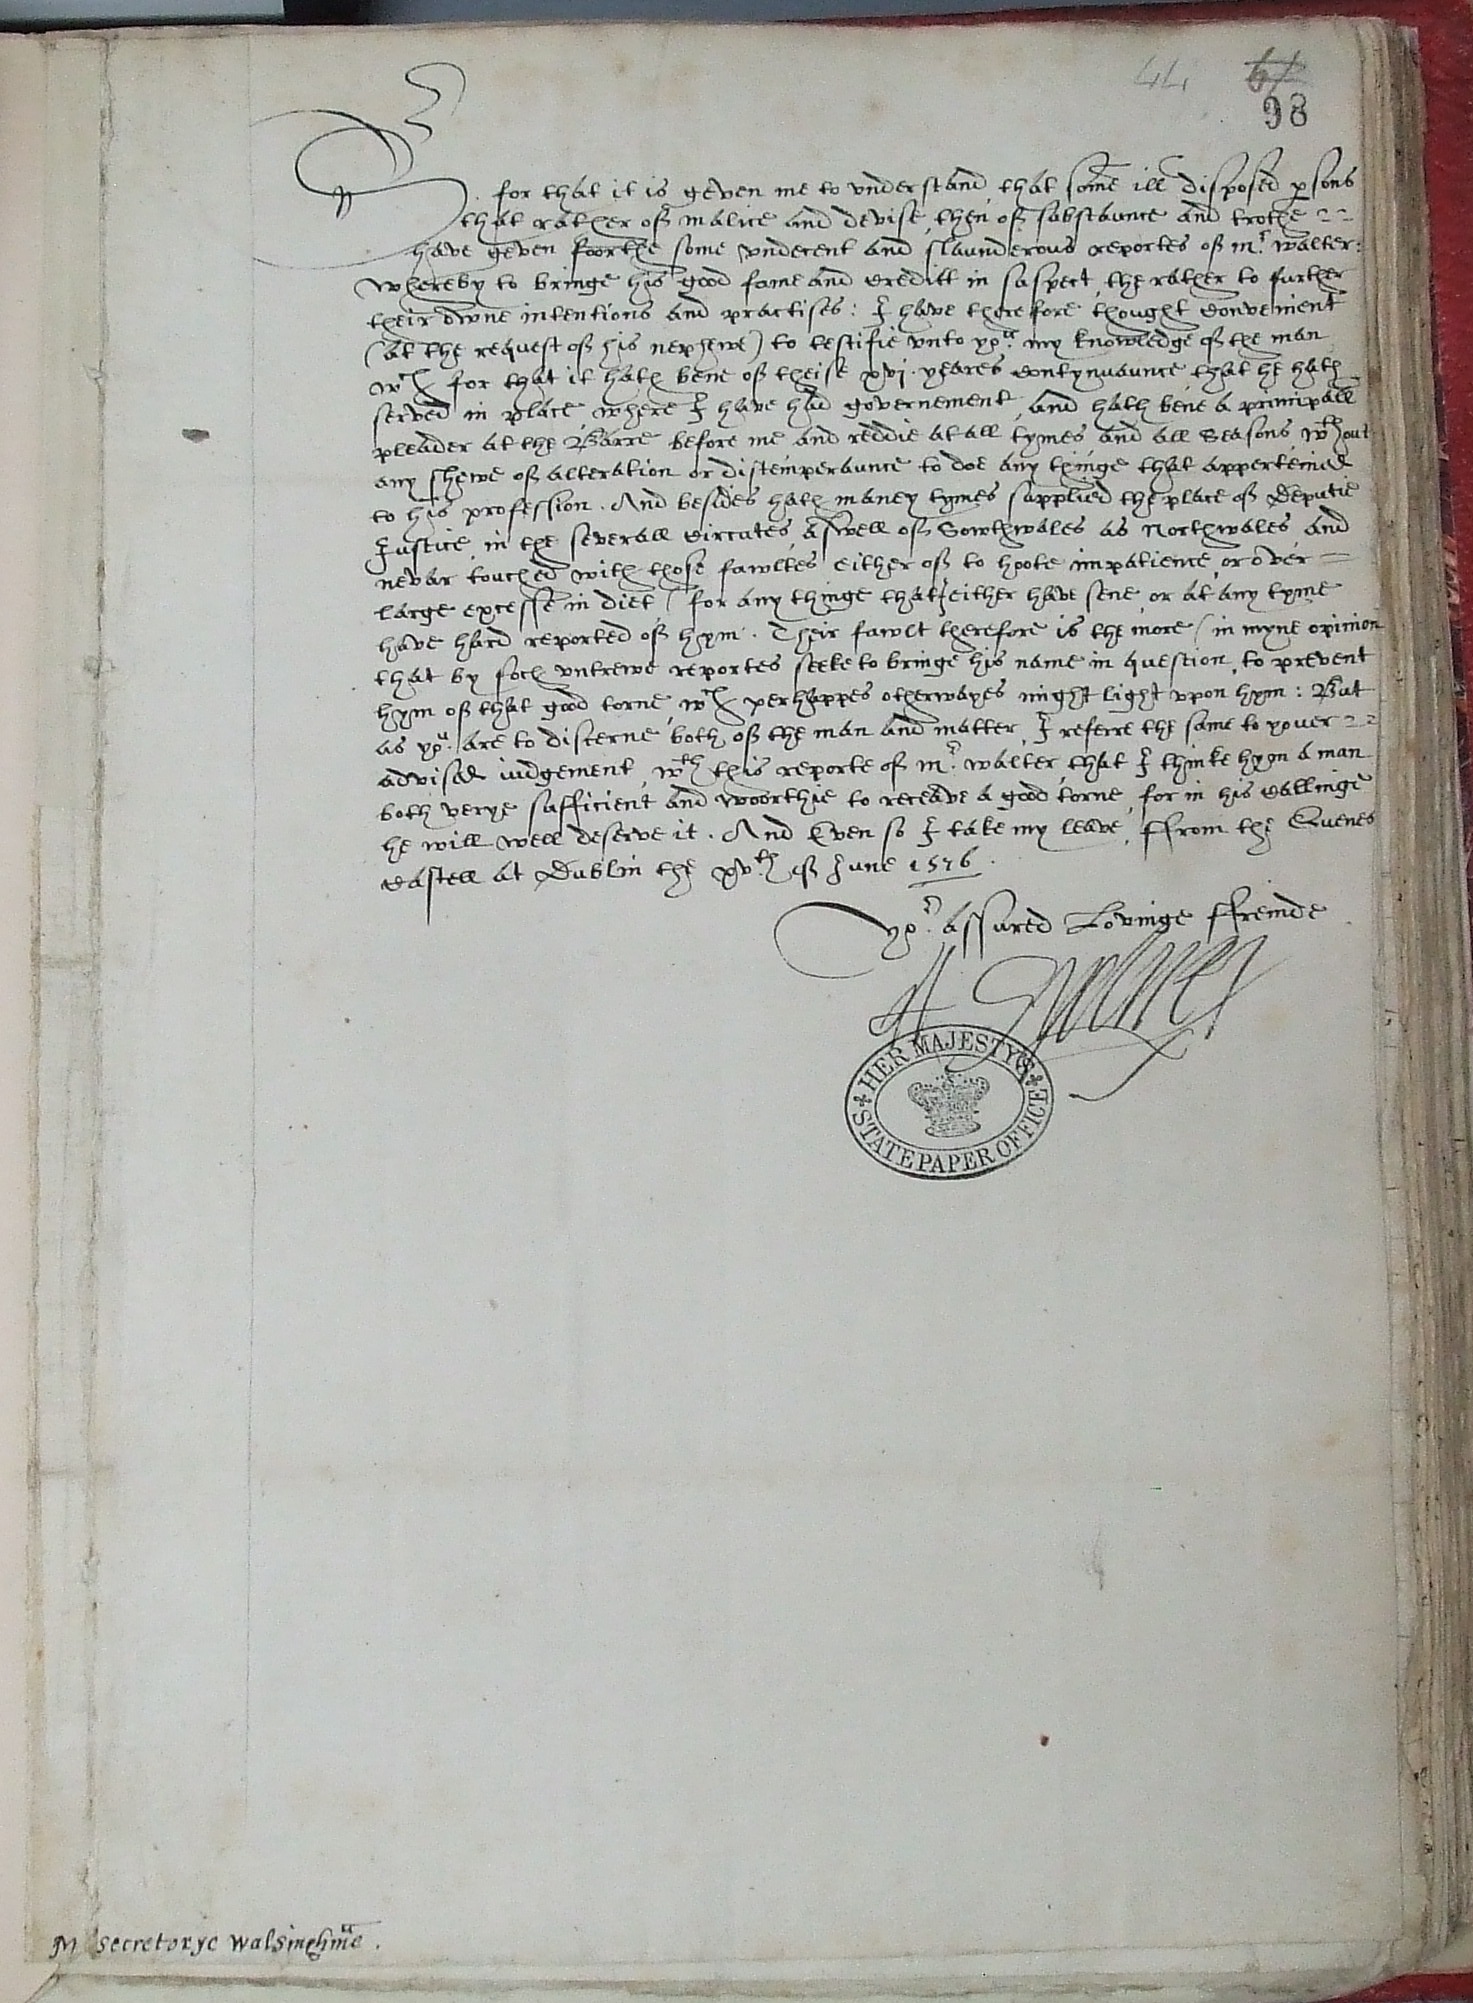 44 61
98
Sr. for that it is geven me to understand, that some ill disposed psons
that rather of malice and devise, then of substaunce and trothe
have geven foorthe some undecent and slaunderous reportes of mr. walter:
whereby to bringe his good fame and creditt in suspect, the rather to further
their owne intentions and practises: I have therefore thought convenient
(at the request of his nephewe) to testifie unto yow. my knowledge of the man,
wch for that it hath bene of theise xvj. yeares contynuaunce, that he hath
served in place, where I have had governement, and hath bene a principall
pleader at the Barre before me and reddie at all tymes and all seasons, wthout
any shewe of alteration or distemperaunce to doe any thinge that apperteined
to his profession. And besides hath maney tymes supplied the place of Deputie
Justice, in the severall circutes, aswell of Sowthwales as Northwales, and
nevar touched with those fawltes either of to hoote impatience, or over =
large excesse in diet, (for any thinge that I either have sene, or at any tyme
have hard reported of hym. Their fawlt therefore is the more (in myne opinion
that by soch untrewe reportes seeke to bringe his name in question, to prevent
hym of that good torne, wch perhappes otherwayes might light upon hym: But
as yow. are to discerne both of the man and matter, I referre the same to youer
advised iudgement, wth this reporte of mr. walter, that I thinke hym a man
both verye sufficient and woorthie to receave a good torne, for in his callinge
he will well deserve it. And Even so I take my leave, ffrom the Quenes
Castell at Dublin the xvth of June 1576.
yor. assured Lovinge ffreinde
H Sydney
HER MAJESTY'S STATE PAPER OFFICE
Mr Secretorye Walsinghme.